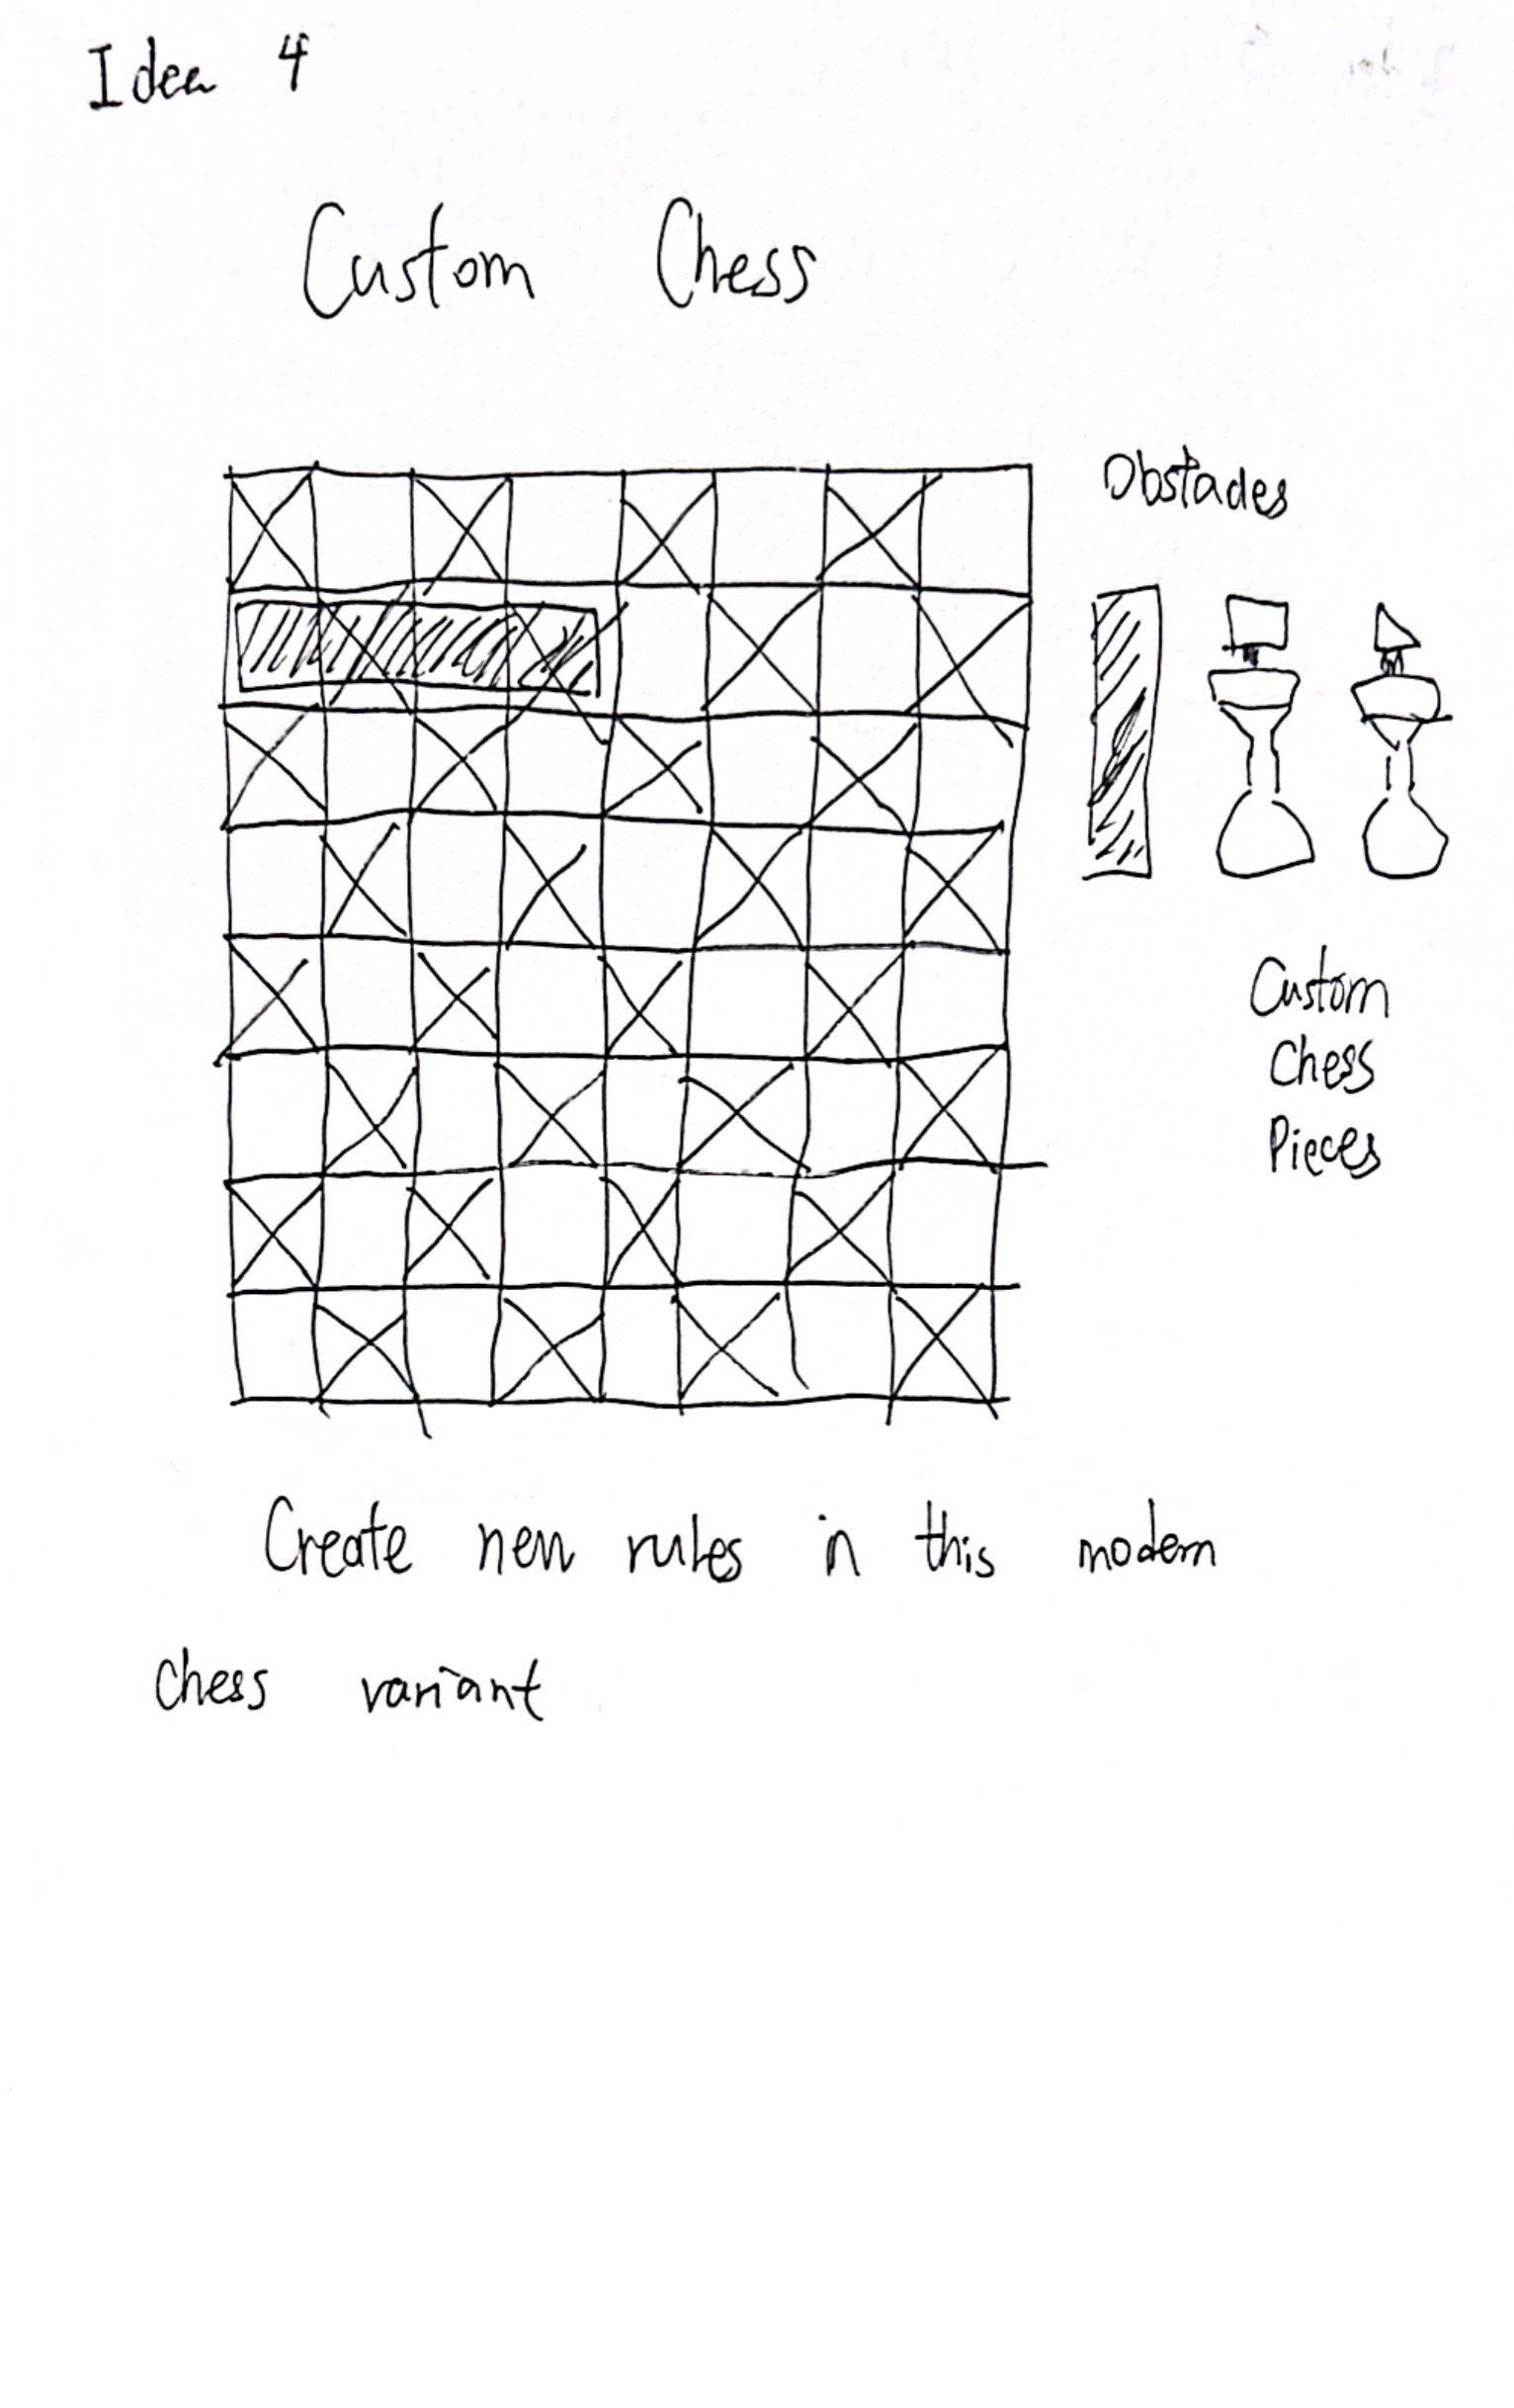 Idea 4
Custom Chess
Obstacles
Custom
Chess
Pieces
Create new rules in this modern
chess variant